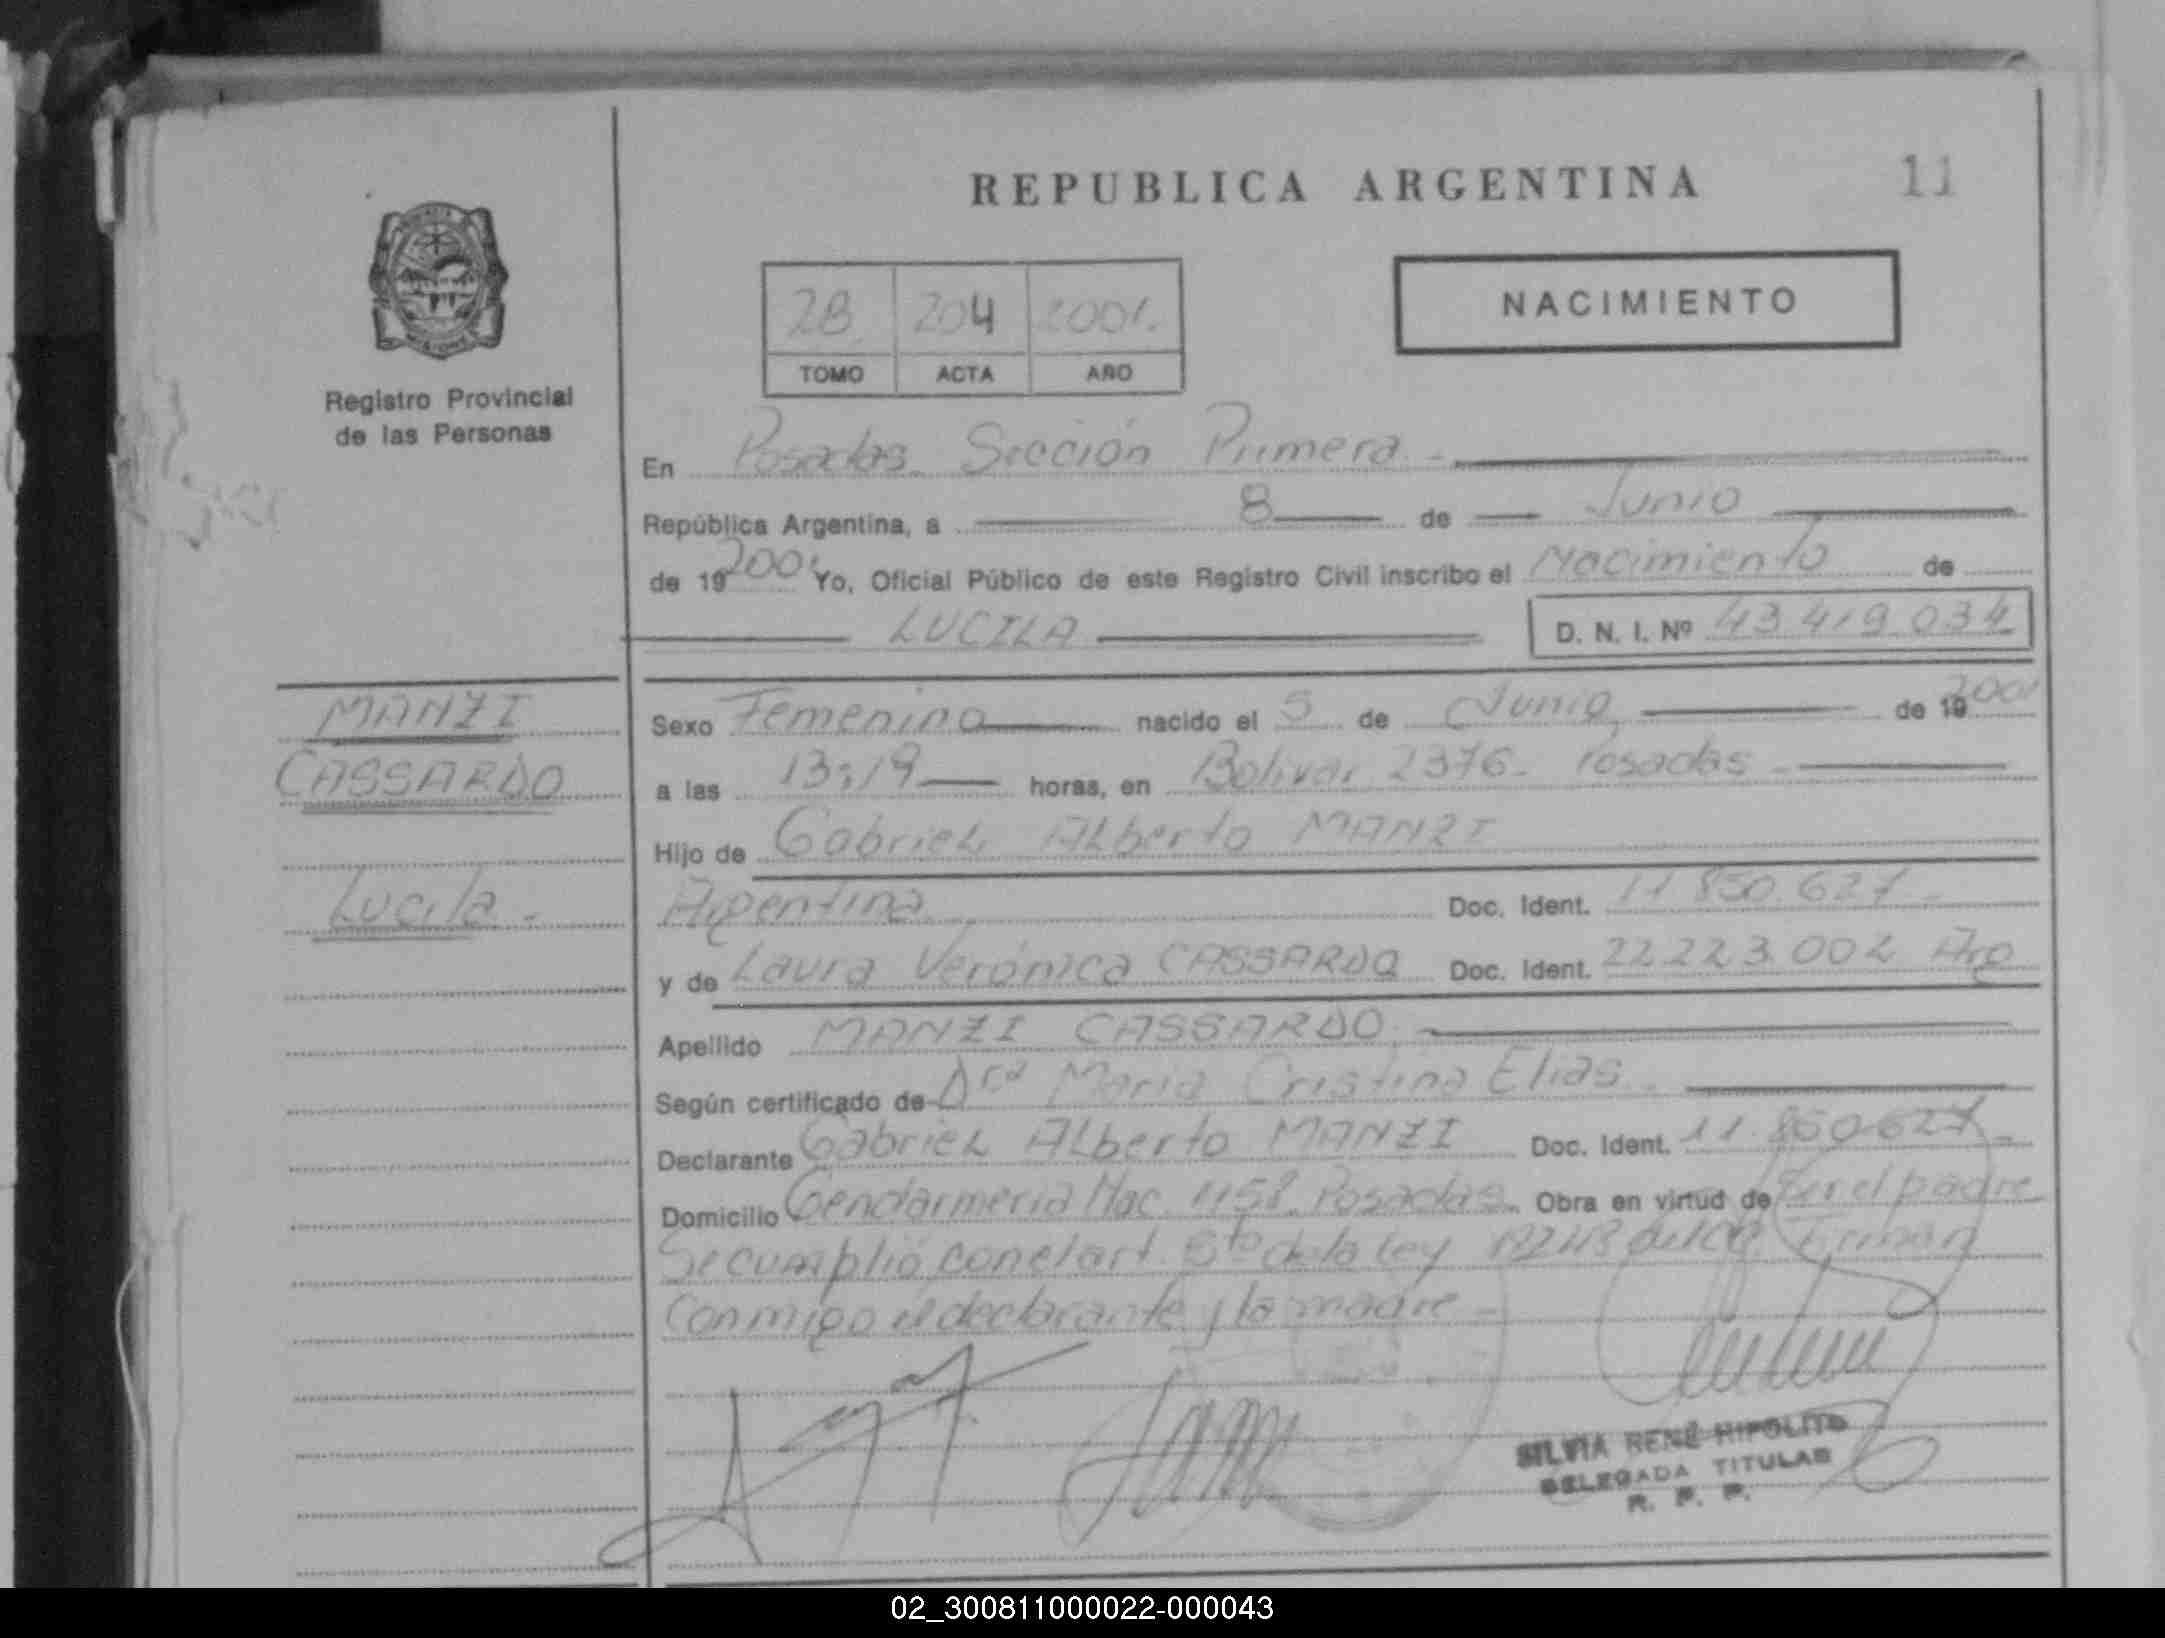 REPUBLICA ARGENTINA 11
NACIMIENTO
28 204 2001.
TOMO ACTA AÑO
Registro Provincial
de las Personas
En Posadas Sección Primera.-
República Argentina, a 8 de Junio
de 19 2001 Yo, Oficial Público de este Registro Civil inscribo el Nacimiento de
LUCILA D. N. I. Nº 43 419 034
MANZI
CASSARDO
Lucila.-
Sexo Femenino nacido el 5 de Junio de 19 2001
a las 13:19 horas, en Bolivar 2376- Posadas-
Hijo de Gabriel Alberto MANZI
Argentina Doc. Ident. 11 850.627-
y de Laura Verónica CASSARDO Doc. Ident. 22 223 002 Arg
Apellido MANZI CASSARDO
Según certificado de Dra Maria Cristina Elias
Declarante Gabriel Alberto MANZI Doc. Ident. 11.850.627-
Domicilio Gendarmeria Nac. 1158. Posadas. Obra en virtud de Ser el padre
Se cumplió con el art. 5to de la ley Firman
Conmigo el declarante y la madre-
SILVIA RENÉ HIPOLITO
DELEGADA TITULAR
R. P. P.
02_300811000022-000043